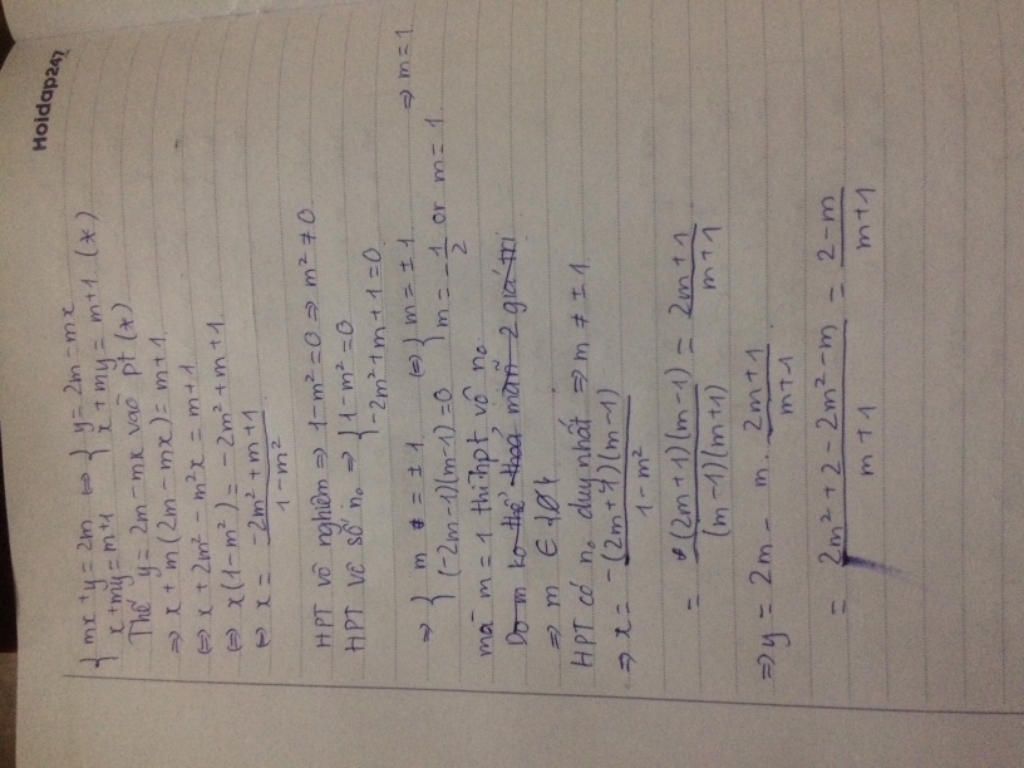 Hoidap247
{ mx + y = 2m ⇔ { y = 2m - mx
{ x + my = m+1 { x + my = m+1 (*)
Thế y = 2m - mx vào pt (*)
⇒ x + m(2m - mx) = m+1
⇔ x + 2m² - m²x = m+1
⇔ x(1-m²) = -2m² + m+1
⇔ x = (-2m² + m+1)/(1-m²)
HPT vô nghiệm ⇒ 1-m² = 0 ⇒ m² ≠ 0
HPT vô số n₀ ⇒ { 1-m² = 0
{ -2m² + m + 1 = 0
⇒ { m = ±1 ⇔ { m = ±1 ⇒ m = 1
{ (-2m-1)(m-1) = 0 { m = -1/2 or m = 1
mà m = 1 thì hpt vô n₀
Do m ko thể thoả mãn 2 giá trị
⇒ m ∈ {∅}
HPT có n₀ duy nhất ⇒ m ≠ ±1
⇒ x = -(2m+1)(m-1)/(1-m²)
= (2m+1)(m-1)/((m-1)(m+1)) = (2m+1)/(m+1)
⇒ y = 2m - m. (2m+1)/(m+1)
= (2m²+2-2m²-m)/(m+1) = (2-m)/(m+1)